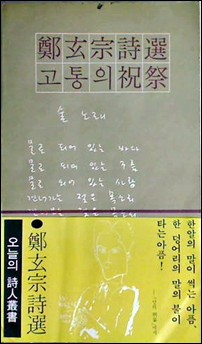 鄭玄宗詩選
고통의祝祭
술 노래
물로 되어 있는 바다
물로 되어 있는 구름
물로 되어 있는 사람
건너가는 젊은 목소리
오늘의 詩人叢書
●鄭玄宗詩選
한알의 말이 썩는 아픔,
한 덩어리의 말의 불이
타는 아픔!